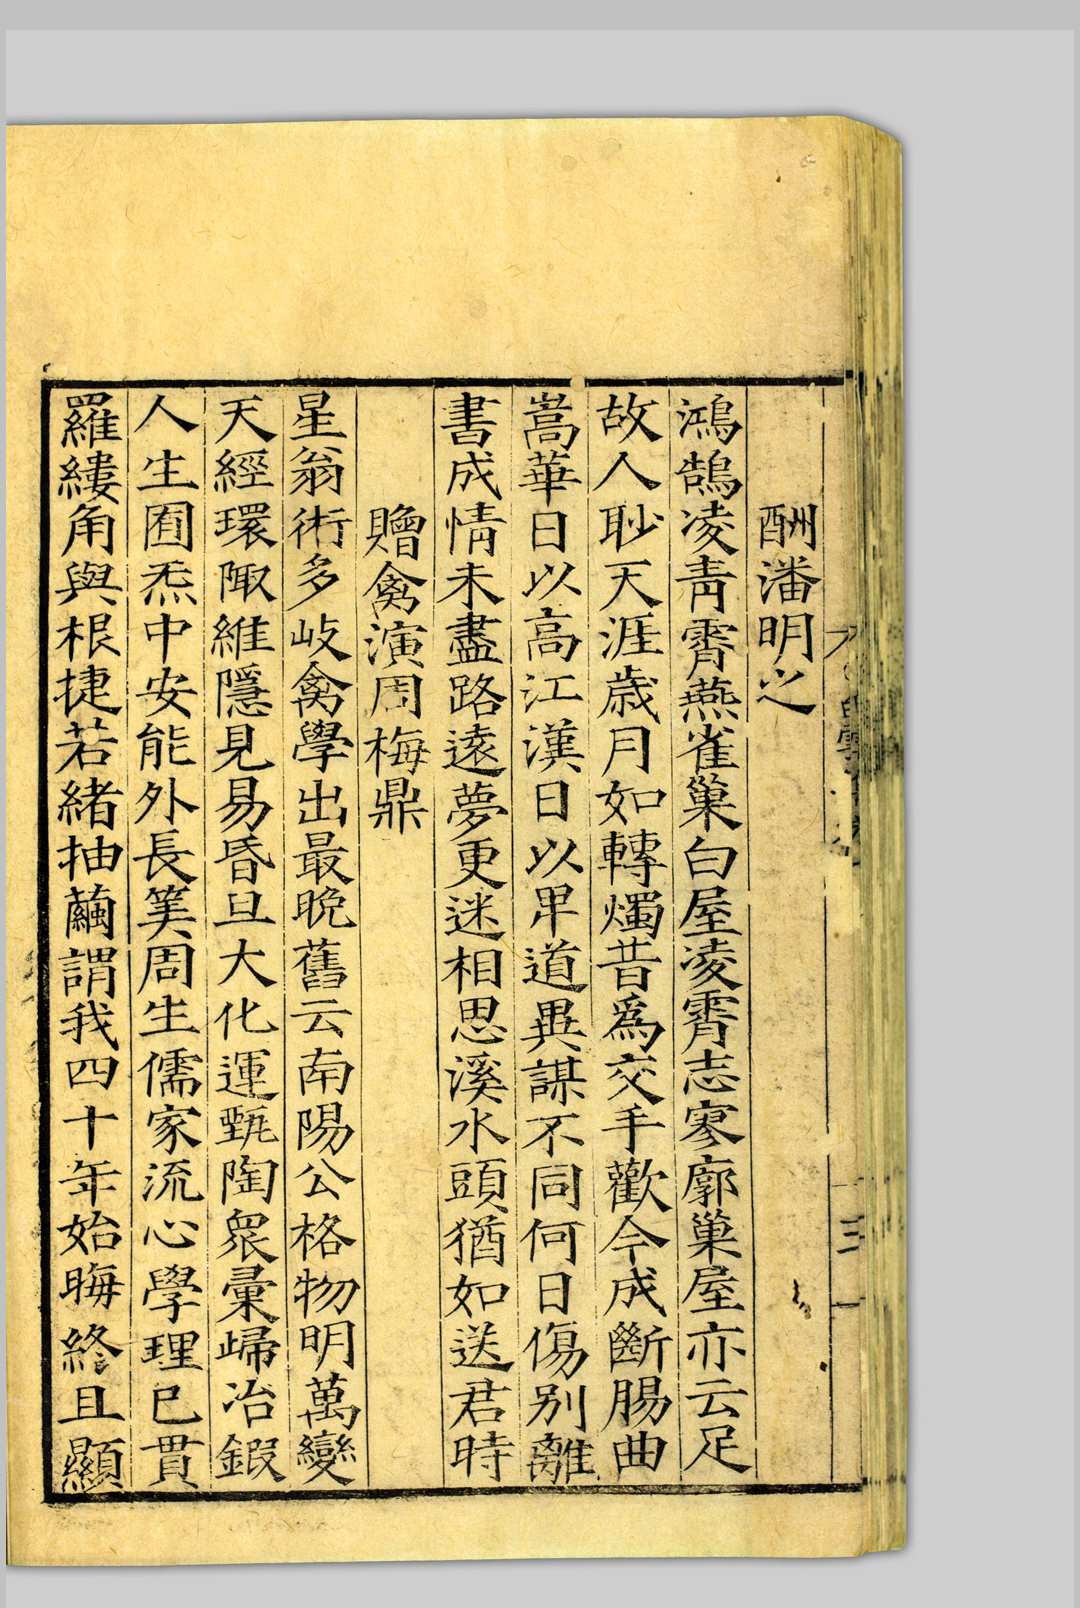 酬潘明之
鴻鵠凌青霄燕雀巢白屋凌霄志寥廓巢屋亦云足
故人眇天涯歲月如轉燭昔為交手歡今成斷腸曲
嵩華日以高江漢日以卑道異謀不同何日傷别離
書成情未盡路遠夢更迷相思溪水頭猶如送君時
贈禽演周梅鼎
星翁術多岐禽學出最晚舊云南陽公格物明萬變
天經環陬維隱見易昏旦大化運甄陶衆彙歸冶鍜
人生囿炁中安能外長筭周生儒家流心學理已貫
羅縷角與根捷若緒抽繭謂我四十年始晦終且顯
三